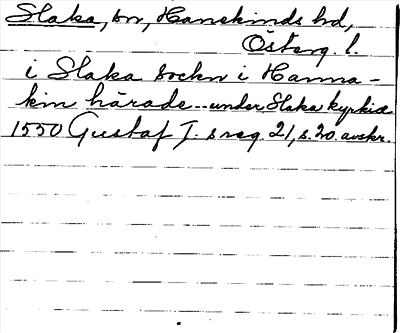 Slaka, sn, Hanekinds hd,
Österg. l.
i Slaka sockn i Hanna-
kin härade .. under Slaka kyrkia
1550 Gustaf I. s reg. 21, s. 20. avskr.